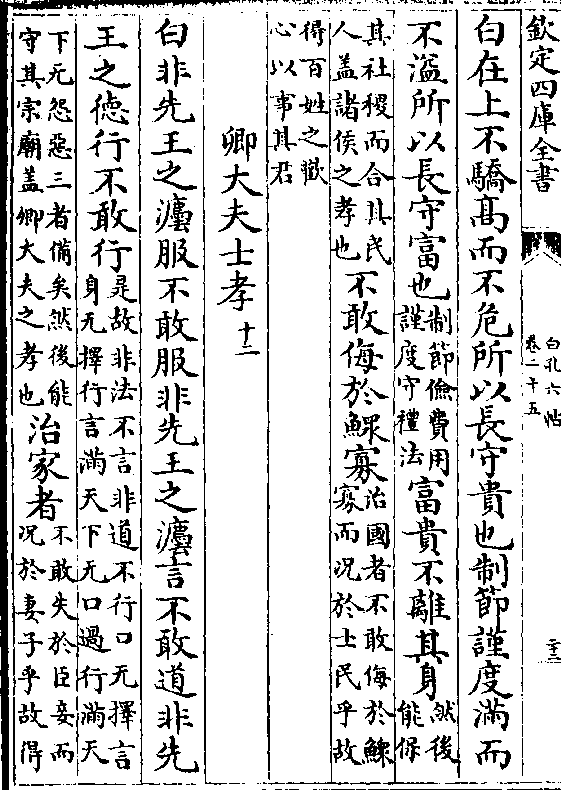 欽定四庫全書
白孔六帖
卷二十五
二十三
白在上不驕髙而不危所以長守貴也制節謹度滿而
不溢所以長守富也
制節儉費用
謹度守禮法
富貴不離其身
然後
能保
其社稷而合其民
人盖諸侯之孝也
不敢侮於鰥寡
治國者不敢侮於鰥
寡而况於士民乎故
得百姓之歡
心以事其君
卿大夫士孝
十二
白非先王之灋服不敢服非先王之灋言不敢道非先
王之徳行不敢行
是故非法不言非道不行口无擇言
身无擇行言滿天下无口過行滿天
下无怨惡三者備矣然後能
守其宗廟盖卿大夫之孝也
治家者
不敢失於臣妾而
况於妻子乎故得